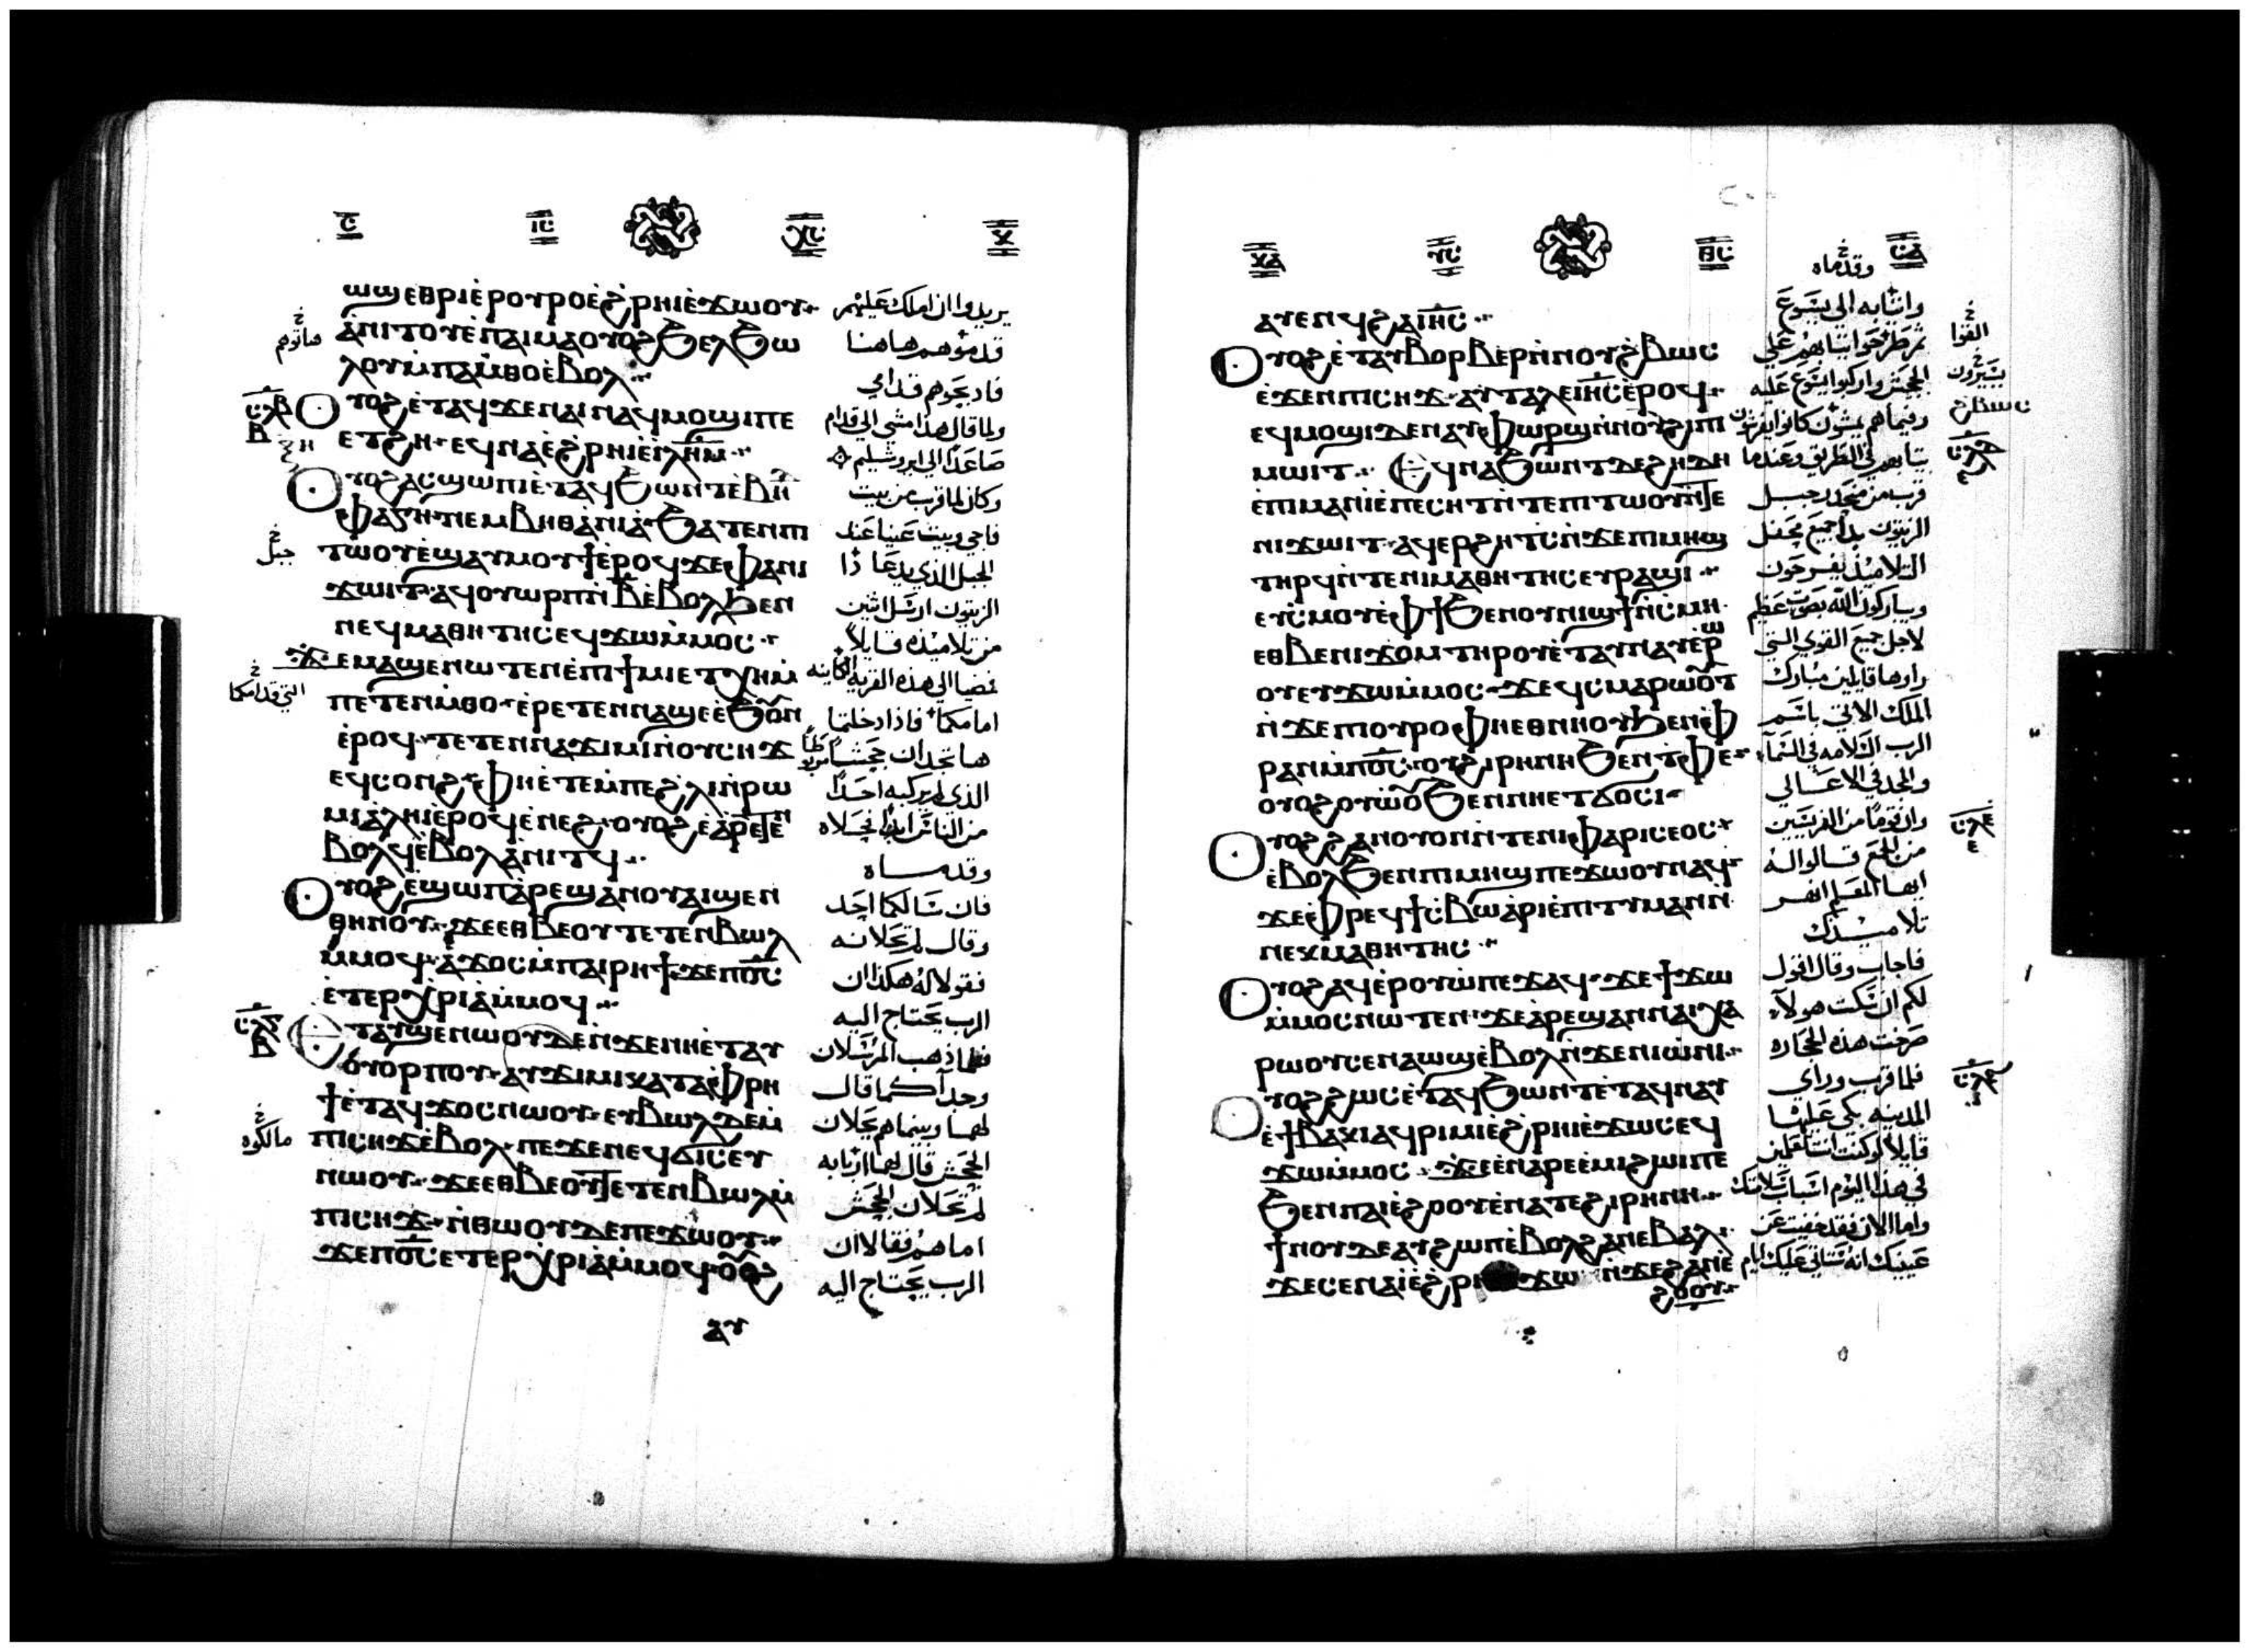 ϣϣⲉⲑⲣⲓⲉ̀ⲣⲟⲩⲣⲟⲉ̀ϩ̀ⲣⲏⲓⲉ̀ϫⲱⲟⲩ
ⲁ̀ⲛⲓⲧⲟⲩⲉ̀ⲡⲁⲓⲙⲁⲟⲩⲟϩϧⲉⲗϧⲱ
ⲗⲟⲩⲙ̀ⲡⲁⲙ̀ⲑⲟⲉ̀ⲃⲟⲗ
ⲟⲩⲟϩⲉ̀ⲧⲁϥϫⲉⲛⲁⲓⲛⲁϥⲙⲟϣⲓⲡⲉ
ⲉⲧϩⲏ ⲉϥⲛⲁⲉ̀ϩ̀ⲣⲏⲓⲉ̀ⲓⲗ̅ⲏ̅ⲙ̅
ⲟⲩⲟϩⲁⲥϣⲱⲡⲓⲉ̀ⲧⲁϥϧⲱⲛⲧⲉ̀ⲃⲏ
ⲫⲁⲅⲏⲛⲉⲙⲃⲏⲑⲁ̀ⲛⲓⲁ̀ϧⲁⲧⲉⲛⲡⲓ
ⲧⲱⲟⲩⲉ̀ϣⲁⲩⲙⲟⲩϯⲉ̀ⲣⲟϥϫⲉⲫⲁⲛⲓ
ϫⲱⲓⲧⲁϥⲟⲩⲱⲣⲡⲛ̀ⲃ̅ⲉ̀ⲃⲟⲗϧⲉⲛ
ⲛⲉϥⲙⲁⲑⲏⲧⲏⲥⲉϥϫⲱⲙ̀ⲙⲟⲥ
ϫⲉⲙⲁϣⲉⲛⲱⲧⲉⲛⲉ̀ⲡⲓϯⲙⲓⲉⲧⲭⲏⲙ̀
ⲡⲉⲧⲉⲛⲙ̀ⲑⲟ ⲉ̀ⲣⲉⲧⲉⲛⲛⲁϣⲉⲉ̀ϧⲟⲩⲛ
ⲉ̀ⲣⲟϥ ⲧⲉⲧⲉⲛⲛⲁϫⲓⲙⲓⲛ̀ⲟⲩⲥⲏϫ
ⲉϥⲥⲟⲛϩ ⲫⲏⲉ̀ⲧⲉⲙ̀ⲡⲉϩⲗⲓⲛ̀ⲣⲱ
ⲙⲓⲁ̀ⲗⲏⲓⲉ̀ⲣⲟϥⲉ̀ⲛⲉϩ ⲟⲩⲟϩⲉ̀ⲁ̀ⲣⲉⲧⲉⲛ
ⲃⲟⲗϥⲉ̀ⲃⲟⲗⲁ̀ⲛⲓⲧϥ
ⲟⲩⲟϩⲉ̀ϣⲱⲡⲁ̀ⲣⲉϣⲁⲛⲟⲩⲁⲓϣⲉⲛ
ⲑⲏⲛⲟⲩ ϫⲉⲉⲑⲃⲉⲟⲩⲧⲉⲧⲉⲛⲃⲱⲗ
ⲙ̀ⲙⲟϥ ⲁ̀ϫⲟⲥⲙ̀ⲡⲁⲓⲣⲏϯϫⲉⲡⲟ̅ⲥ̅
ⲉ̀ⲧⲉⲣⲭ̀ⲣⲓⲁⲙ̀ⲙⲟϥ
ⲉⲧⲁⲩϣⲉⲛⲱⲟⲩⲇⲉⲛ̀ϫⲉⲛⲏⲉ̀ⲧⲁⲩ
ⲟⲩⲟⲣⲡⲟⲩ ⲁⲩϫⲓⲙⲓⲕⲁⲧⲁⲫ̀ⲣⲏ
ϯⲉ̀ⲧⲁϥϫⲟⲥⲛⲱⲟⲩ ⲉⲩⲃⲱⲗⲇⲉⲙ̀
ⲡⲓⲥⲏϫⲉ̀ⲃⲟⲗ ⲡⲉϫⲉⲛⲉϥϭⲓⲥⲉⲩ
ⲛⲱⲟⲩ ϫⲉⲉⲑⲃⲉⲟⲩⲧⲉⲧⲉⲛⲃⲱⲗⲙ̀
ⲡⲓⲥⲏϫ ⲛ̀ⲑⲱⲟⲩⲇⲉⲡⲉϫⲱⲟⲩ
ϫⲉⲡⲟ̅ⲥ̅ⲉⲧⲉⲣⲭ̀ⲣⲓⲁ̀ⲙ̀ⲙⲟϥ ⲟⲩⲟϩ
ⲁⲩ
يريدوا ان املك عليهم
قدموهم هاهنا
هاتوهم
فاذبحوهم قدامي
ولما قال هذا مشي الي قدام
صاعدًا الي ايروشليم
وكان لما قرب من بيت
فاجي وبيت عنيا عند
جبل
الجبل الذي يدعا ذا
الزيتون ارسل اثنين
من تلاميذه قايلاً
امضيا الي هذه القرية الكاينه
التي قدامكما
امامكما فاذا دخلتما
ها تجدان جحشًا مربوطًا
الذي لم يركبه احدًا
من الناس ابدًا فحلاه
وقدماه
فان سالكما احد
وقال لم تحلانه
فقولا له هكذا ان
الرب يحتاج اليه
فلما ذهب المرسلان
وجدا كما قال
لهما وبينما هم يحلان
مالكوه
الجحش قال لهما اربابه
لم تحلان الجحش
اما هم فقالا ان
الرب يحتاج اليه
ⲁⲩⲉⲛϥϩⲁⲓ̅ⲏ̅ⲥ̅
ⲟⲩⲟϩⲉ̀ⲧⲁⲩⲃⲟⲣⲃⲉⲣⲛ̀ⲛⲟⲩϩ̀ⲃⲱⲥ
ⲉ̀ϫⲉⲛⲡⲓⲥⲏϫ ⲁⲩⲧⲁⲗⲉⲓ̅ⲏ̅ⲥ̅ⲉ̀ⲣⲟϥ
ⲉϥⲙⲟϣⲓⲇⲉⲛⲁⲩⲫⲱⲣϣⲛ̀ⲛⲟⲩϩ̀ⲓⲡⲓ
ⲙⲱⲓⲧ ⲉϥⲛⲁϧⲱⲛⲧⲇⲉϩⲏⲇⲏ
ⲉ̀ⲡⲓⲙⲁⲛ̀ⲓⲉ̀ⲡⲉⲥⲏⲧⲛ̀ⲧⲉⲡⲓⲧⲱⲟⲩⲛ̀ⲧⲉ
ⲛⲓϫⲱⲓⲧ ⲁϥⲉⲣϩⲏⲧⲥⲛ̀ϫⲉⲡⲓⲙⲏϣ
ⲧⲏⲣϥⲛ̀ⲧⲉⲛⲓⲙⲁⲑⲏⲧⲏⲥⲉⲩⲣⲁϣⲓ
ⲉⲩⲥ̀ⲙⲟⲩⲉ̀ⲫϯϧⲉⲛⲟⲩⲛⲓϣϯⲛ̀ⲥ̀ⲙⲏ
ⲉⲑⲃⲉⲛⲓϫⲟⲙⲧⲏⲣⲟⲩⲉ̀ⲧⲁⲩⲛⲁⲩⲉ̀ⲣⲱ
ⲟⲩⲉⲩϫⲱⲙ̀ⲙⲟⲥ ϫⲉϥⲥ̀ⲙⲁⲣⲱⲟⲩⲧ
ⲛ̀ϫⲉⲡⲟⲩⲣⲟⲫⲏⲉⲑⲛⲏⲟⲩϧⲉⲛⲫ̀
ⲣⲁⲛⲙ̀ⲡⲟ̅ⲥ̅ ⲟⲩϩⲓⲣⲏⲛⲏϧⲉⲛⲧ̀ⲫⲉ
ⲟⲩⲟϩⲟⲩⲱ̀ⲟⲩϧⲉⲛⲛⲏⲉⲧϭⲟⲥⲓ
ⲟⲩⲟϩϩⲁⲛⲟⲩⲟⲛⲛ̀ⲧⲉⲛⲓⲫⲁⲣⲓⲥⲉⲟⲥ
ⲉ̀ⲃⲟⲗϧⲉⲛⲡⲓⲙⲏϣⲡⲉϫⲱⲟⲩⲛⲁϥ
ϫⲉⲫ̀ⲣⲉϥϯⲥ̀ⲃⲱⲁ̀ⲣⲓⲉ̀ⲡⲓⲧⲓⲙⲁⲛⲛ̀
ⲛⲉⲕⲙⲁⲑⲏⲧⲏⲥ
ⲟⲩⲟϩⲁϥⲉ̀ⲣⲟⲩⲱ̀ⲡⲉϫⲁϥ ϫⲉϯϫⲱ
ⲙ̀ⲙⲟⲥⲛⲱⲧⲉⲛ ϫⲉⲁ̀ⲣⲉϣⲁⲛⲛⲁⲓⲭⲁ
ⲣⲱⲟⲩⲥⲉⲛⲁⲱϣⲉ̀ⲃⲟⲗⲛ̀ϫⲉⲛⲓⲱ̀ⲛⲓ
ⲟⲩⲟϩϩⲱⲥⲉ̀ⲧⲁϥϧⲱⲛⲧⲉ̀ⲧⲁϥⲛⲁⲩ
ⲉ̀ϯⲃⲁⲕⲓⲁϥⲣⲓⲙⲓⲉ̀ϩ̀ⲣⲏⲓⲉ̀ϫⲱⲥⲉϥ
ϫⲱⲙ̀ⲙⲟⲥ ϫⲉⲉ̀ⲛⲁⲣⲉⲉ̀ⲙⲓϩⲱⲓⲡⲉ
ϧⲉⲛⲡⲁⲓⲉ̀ϩⲟⲟⲩⲉ̀ⲛⲁⲧⲉϩⲓⲣⲏⲛⲏ
ϯⲛⲟⲩⲇⲉⲁⲩϩⲱⲡⲉ̀ⲃⲟⲗϩⲁⲛⲉⲃⲁⲗ
ϫⲉⲥⲉⲛⲁⲓⲉ̀ϩ̀ⲣⲏ ϫⲱ ⲛ̀ϫⲉϩⲁⲛⲉ̀
ϩⲟⲟⲩ
وقدماه
واتيا به الي يسوع
ثم طرحوا ثيابهم علي
القوا
الجحش واركبوا يسوع عليه
يسيرون
وفيما هم يمشون كانوا يفرشون
ثيابهم في الطريق وعندما
قرب من منحدر جبل
الزيتون بدا جميع محفل
التلاميذ يفرحون
ويباركون الله بصوت عظيم
لاجل جميع القوي التي
راوها قايلين مبارك
الملك الاتي باسم
الرب السلامه في السماء
والمجد في الاعالي
وان قومًا من الفريسيين
من الجمع قالوا له
ايها المعلم انهر
تلاميذك
فاجاب وقال اقول
لكم ان سكت هولاء
صرخت هذه الحجاره
فلما قرب وراي
المدينه بكي عليها
قايلاً لو كنت انت تعلمين
في هذا اليوم اسباب سلامتك
واما الان فقد خفيت عن
عينيك انه ستاتي عليك ايام